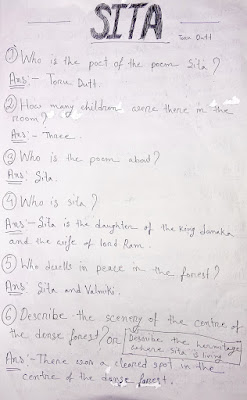 SITA
Toru Dutt
① Who is the poet of the poem Sita?
Ans:- Toru Dutt.
② How many children were there in the
room?
Ans:- Three.
③ Who is the poem about?
Ans:- Sita.
④ Who is sita?
Ans:- Sita is the daughter of the King Janaka
and the wife of lord Ram.
⑤ Who dwells in peace in the forest?
Ans:- Sita and Valmiki.
⑥ Describe the scenery of the centre of
the dense forest? OR Describe the hermitage
where sita is living
Ans:- There was a cleared spot in the
centre of the dense forest.